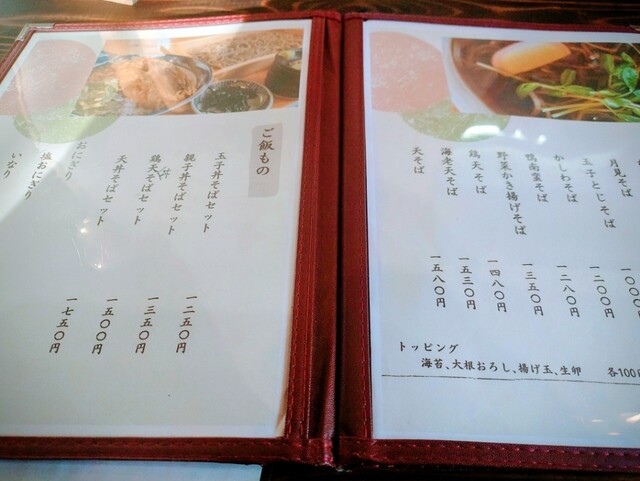 月見そば
玉子とじそば 一〇〇
かしわそば 一二〇〇円
鴨南蛮そば 一二八〇円
野菜かき揚げそば 一三五〇円
鶏天そば 一四八〇円
海老天そば 一五三〇円
天そば 一五八〇円
トッピング
海苔、大根おろし、揚げ玉、生卵 各100円
ご飯もの
玉子丼そばセット 一二五〇円
親子丼そばセット 一三五〇円
鶏天丼そばセット 一五〇〇円
天丼そばセット 一七五〇円
おにぎり
塩おにぎり
いなり